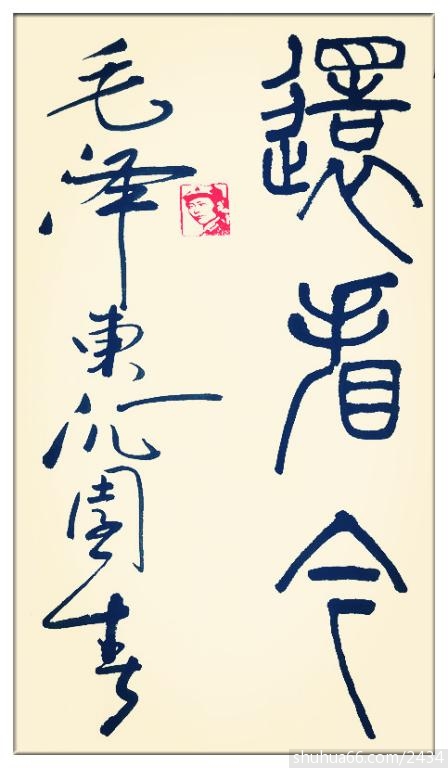 還看今
毛泽東沁園春
shuhua66.com/2434